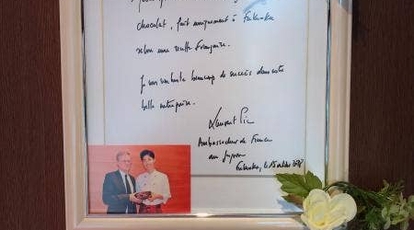 chocolat, fait uniquement à Fukuoka
selon une recette Française.
Je vous souhaite beaucoup de succès dans cette
belle entreprise.
Laurent Pic
Ambassadeur de France
au Japon
Fukuoka, le